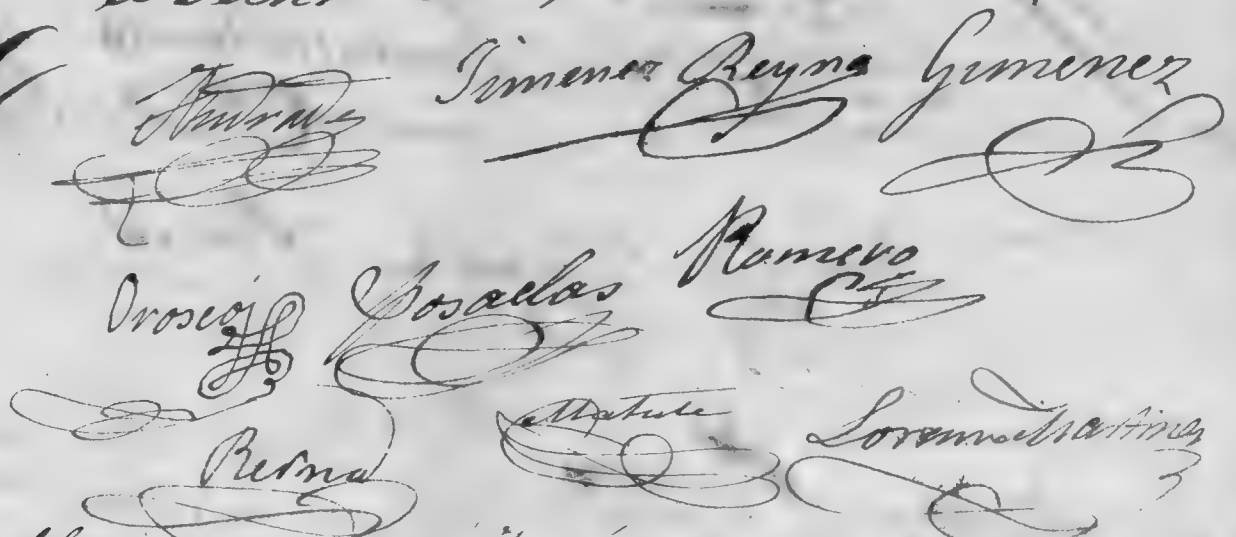 Andrade Jimenez Reyna Gimenez
Romero
Orosco Posadas
Reyna Matute Lorenzo Martinez